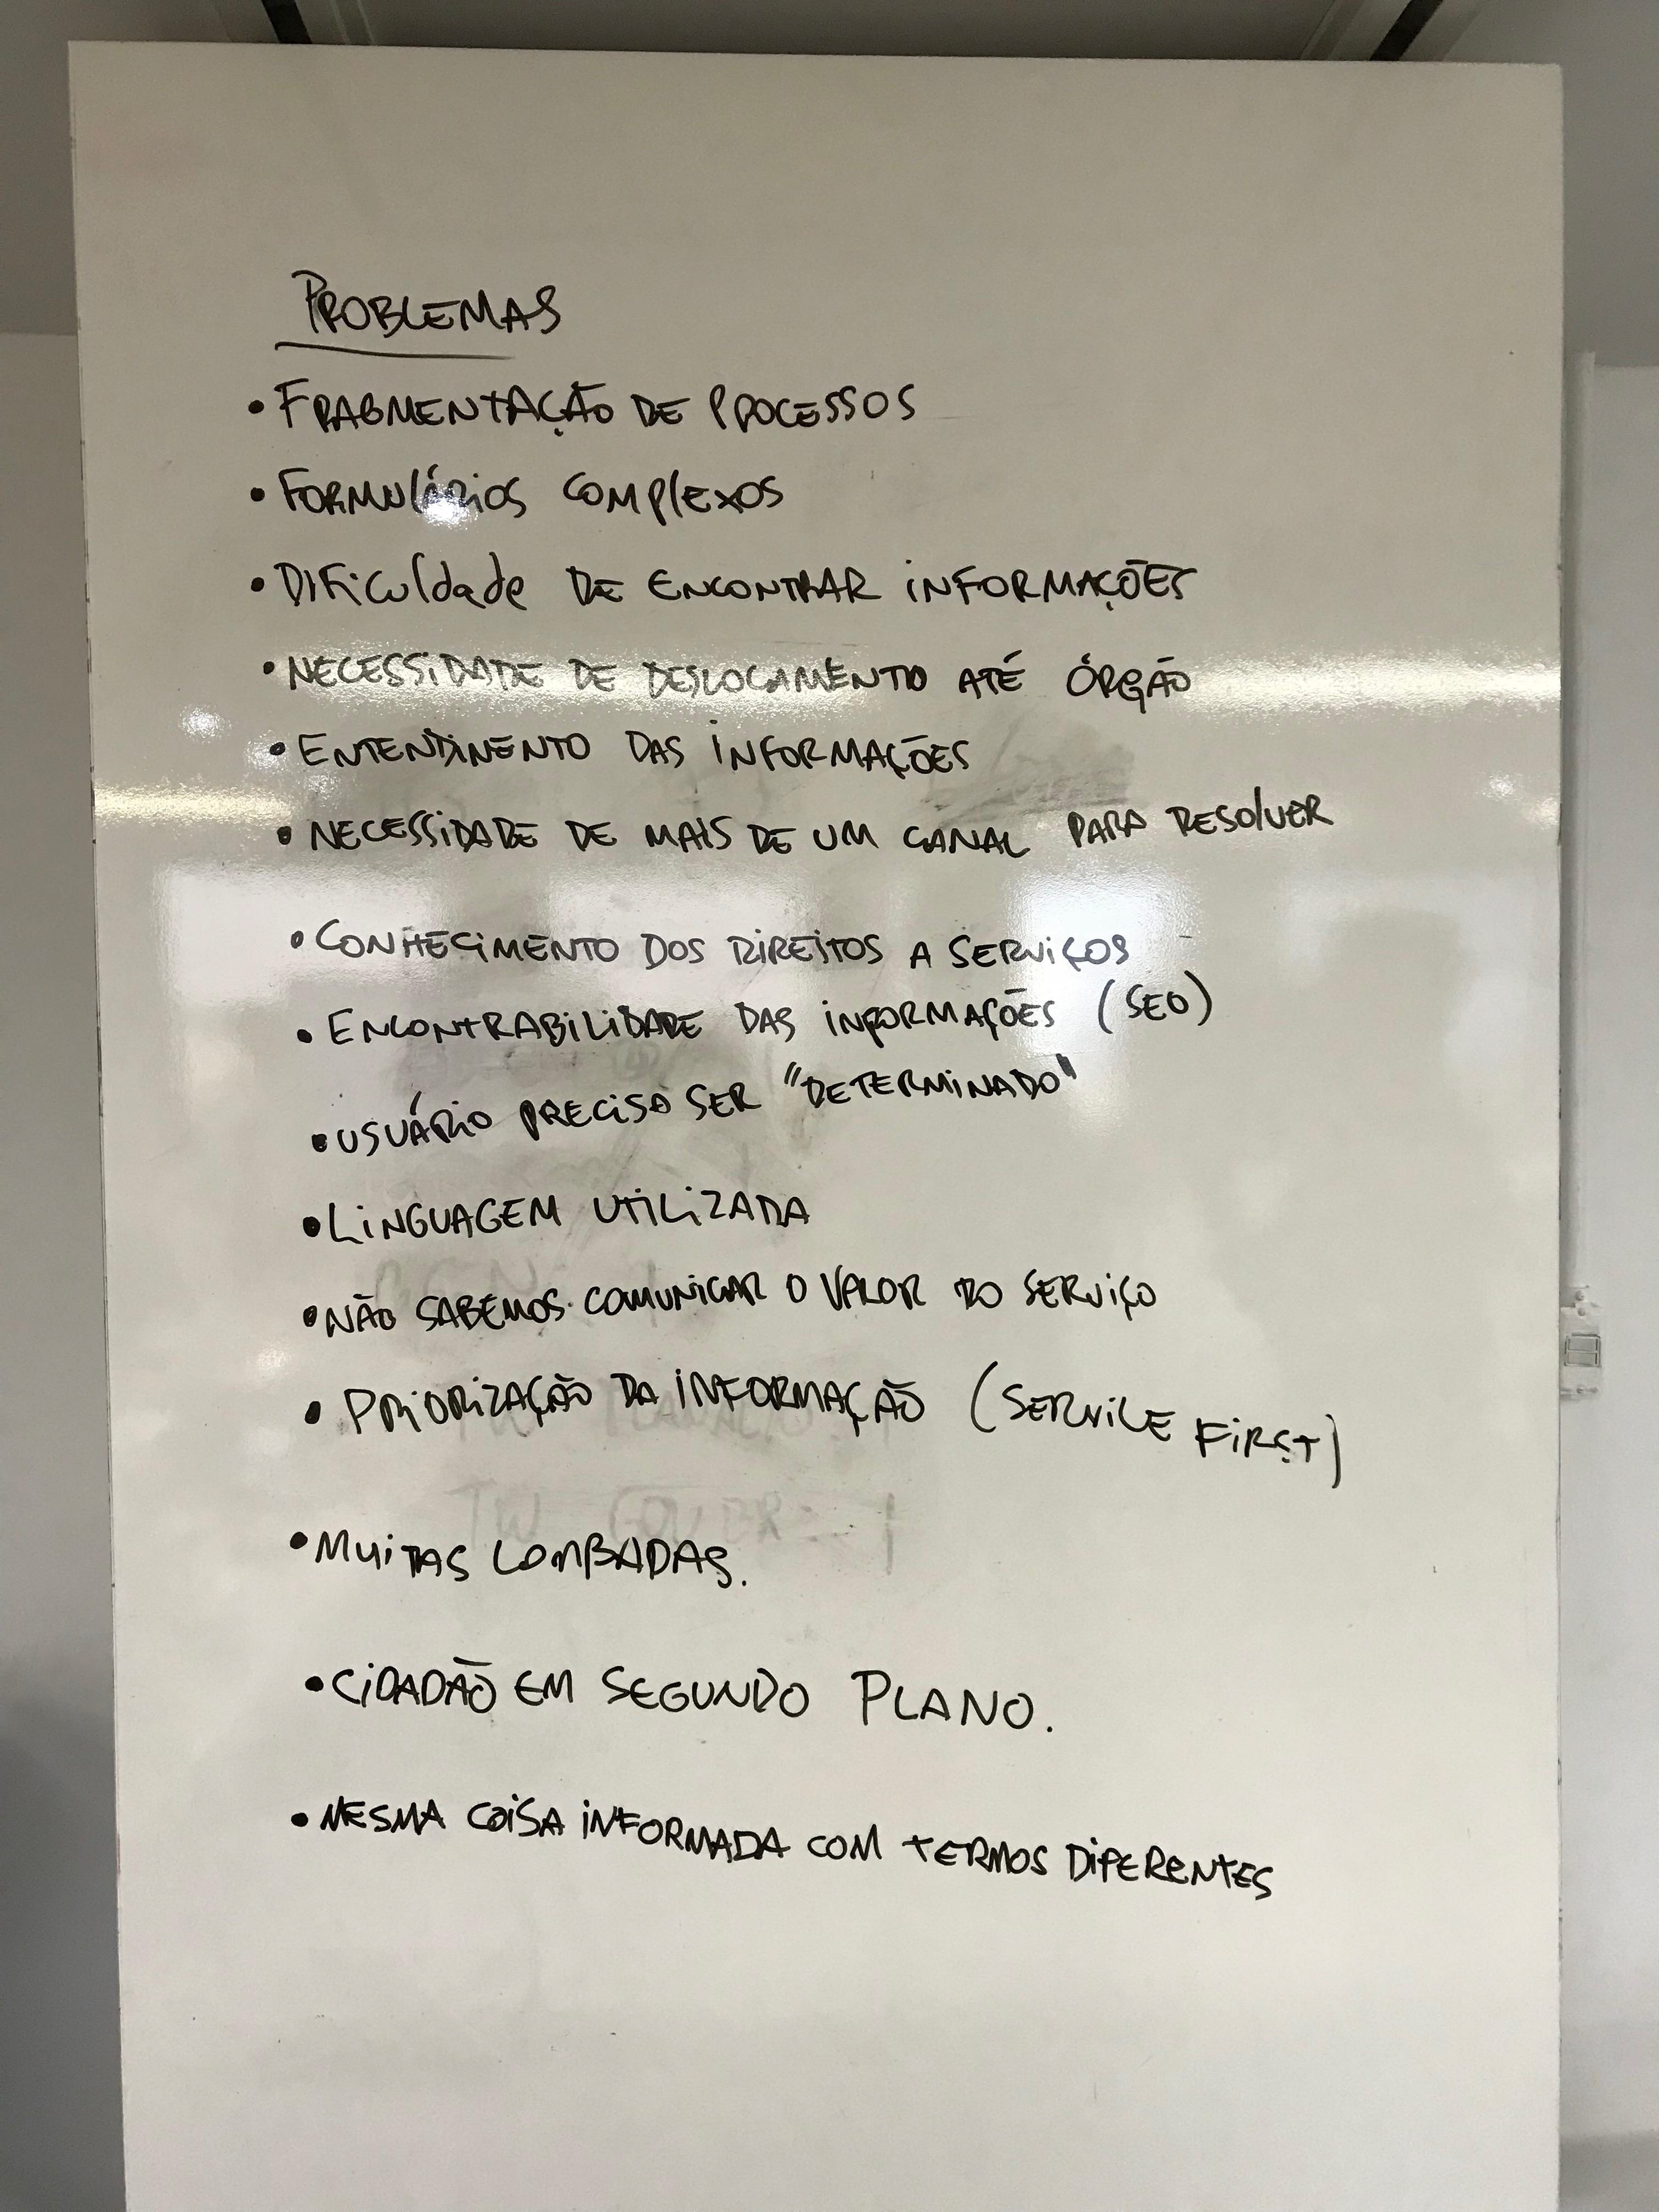 PROBLEMAS
• FRAGMENTAÇÃO DE PROCESSOS
• FORMULÁRIOS COMPLEXOS
• DIFICULDADE DE ENCONTRAR INFORMAÇÕES
• NECESSIDADE DE DESLOCAMENTO ATÉ ÓRGÃO
• ENTENDIMENTO DAS INFORMAÇÕES
• NECESSIDADE DE MAIS DE UM CANAL PARA RESOLVER
• CONHECIMENTO DOS DIREITOS A SERVIÇOS
• ENCONTRABILIDADE DAS INFORMAÇÕES (SEO)
• USUÁRIO PRECISA SER "DETERMINADO"
• LINGUAGEM UTILIZADA
• NÃO SABEMOS COMUNICAR O VALOR DO SERVIÇO
• PRIORIZAÇÃO DA INFORMAÇÃO (SERVICE FIRST)
• MUITAS LOMBADAS.
• CIDADÃO EM SEGUNDO PLANO.
• MESMA COISA INFORMADA COM TERMOS DIFERENTES